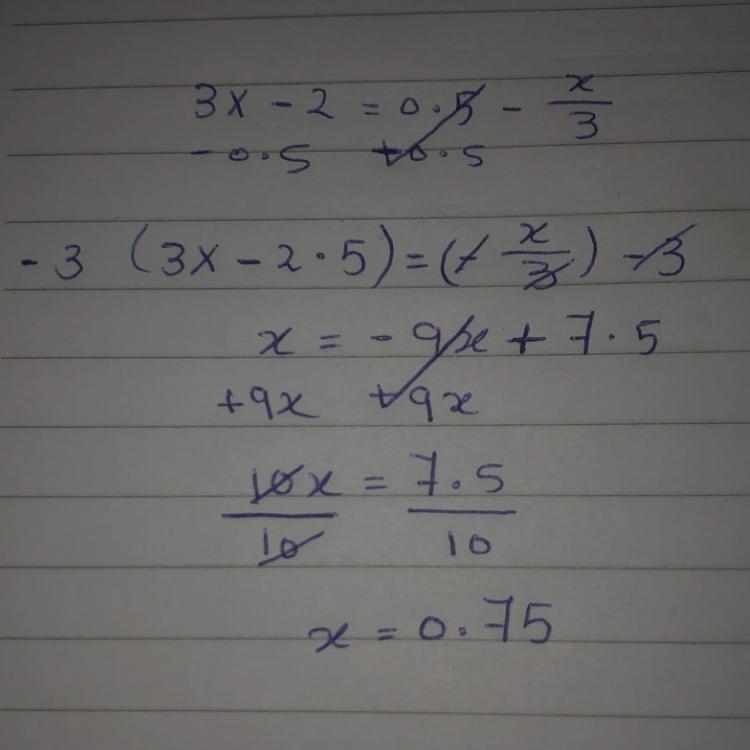 3x - 2 = 0.5 - x/3
- 0.5 +0.5
-3 (3x - 2.5) = (- x/3) -3
x = -9x + 7.5
+9x +9x
10x/10 = 7.5/10
x = 0.75